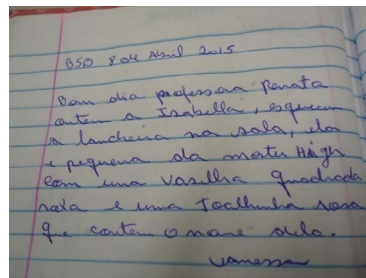 BSD 8 de Abril 2015
Bom dia professora Renata
ontem a Isabella, esqueceu
a lancheira na sala, ela
e pequena da monster High
com uma vasilha quadrada
roxa e uma toalhinha rosa
que contem o nome dela.
Vanessa